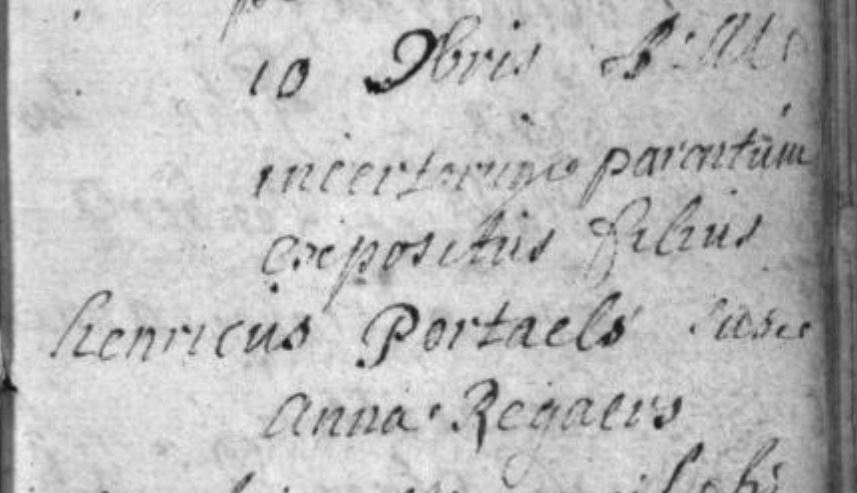 10 9bris B:
incertorum parentum
expositus filius
henricus Portaels susc
Anna Regaers